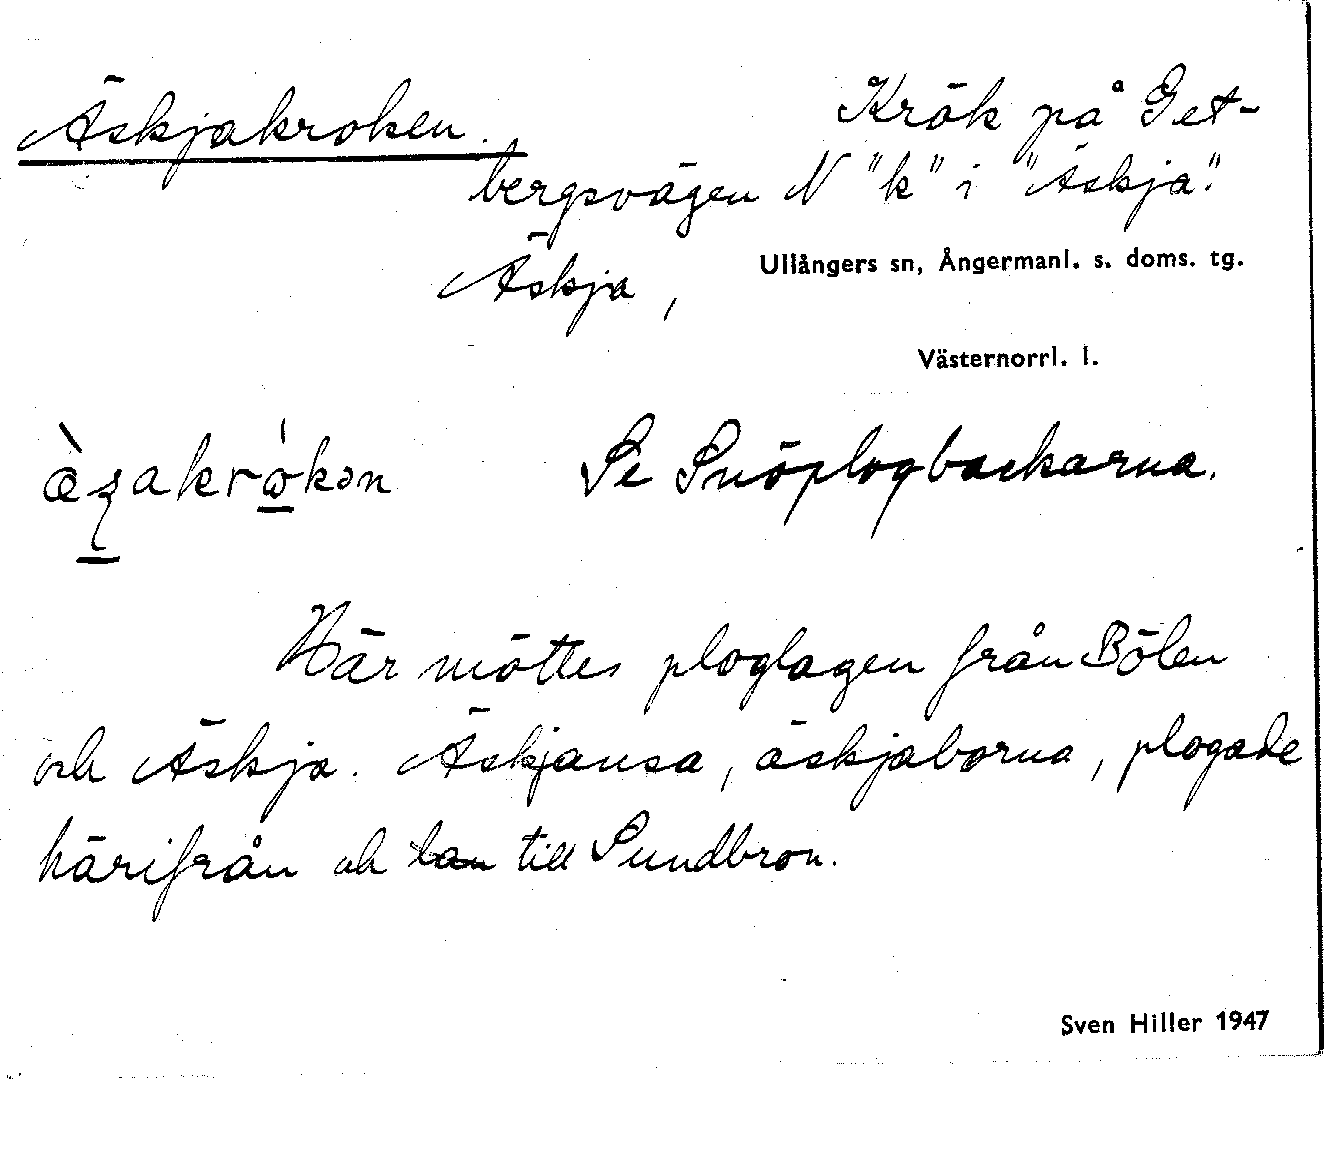 Äskjakroken.
Krök på Get-
bergsvägen N "k" i "Äskja".
Äskja,
Ullångers sn, Ångermanl. s. doms. tg.
Västernorrl. l.
Se Snöplogbackarna.
Här möttes ploglagen från Bölen
och Äskja. Äskjansa, äskjaborna, plogade
härifrån och till Sundbron.
Sven Hiller 1947